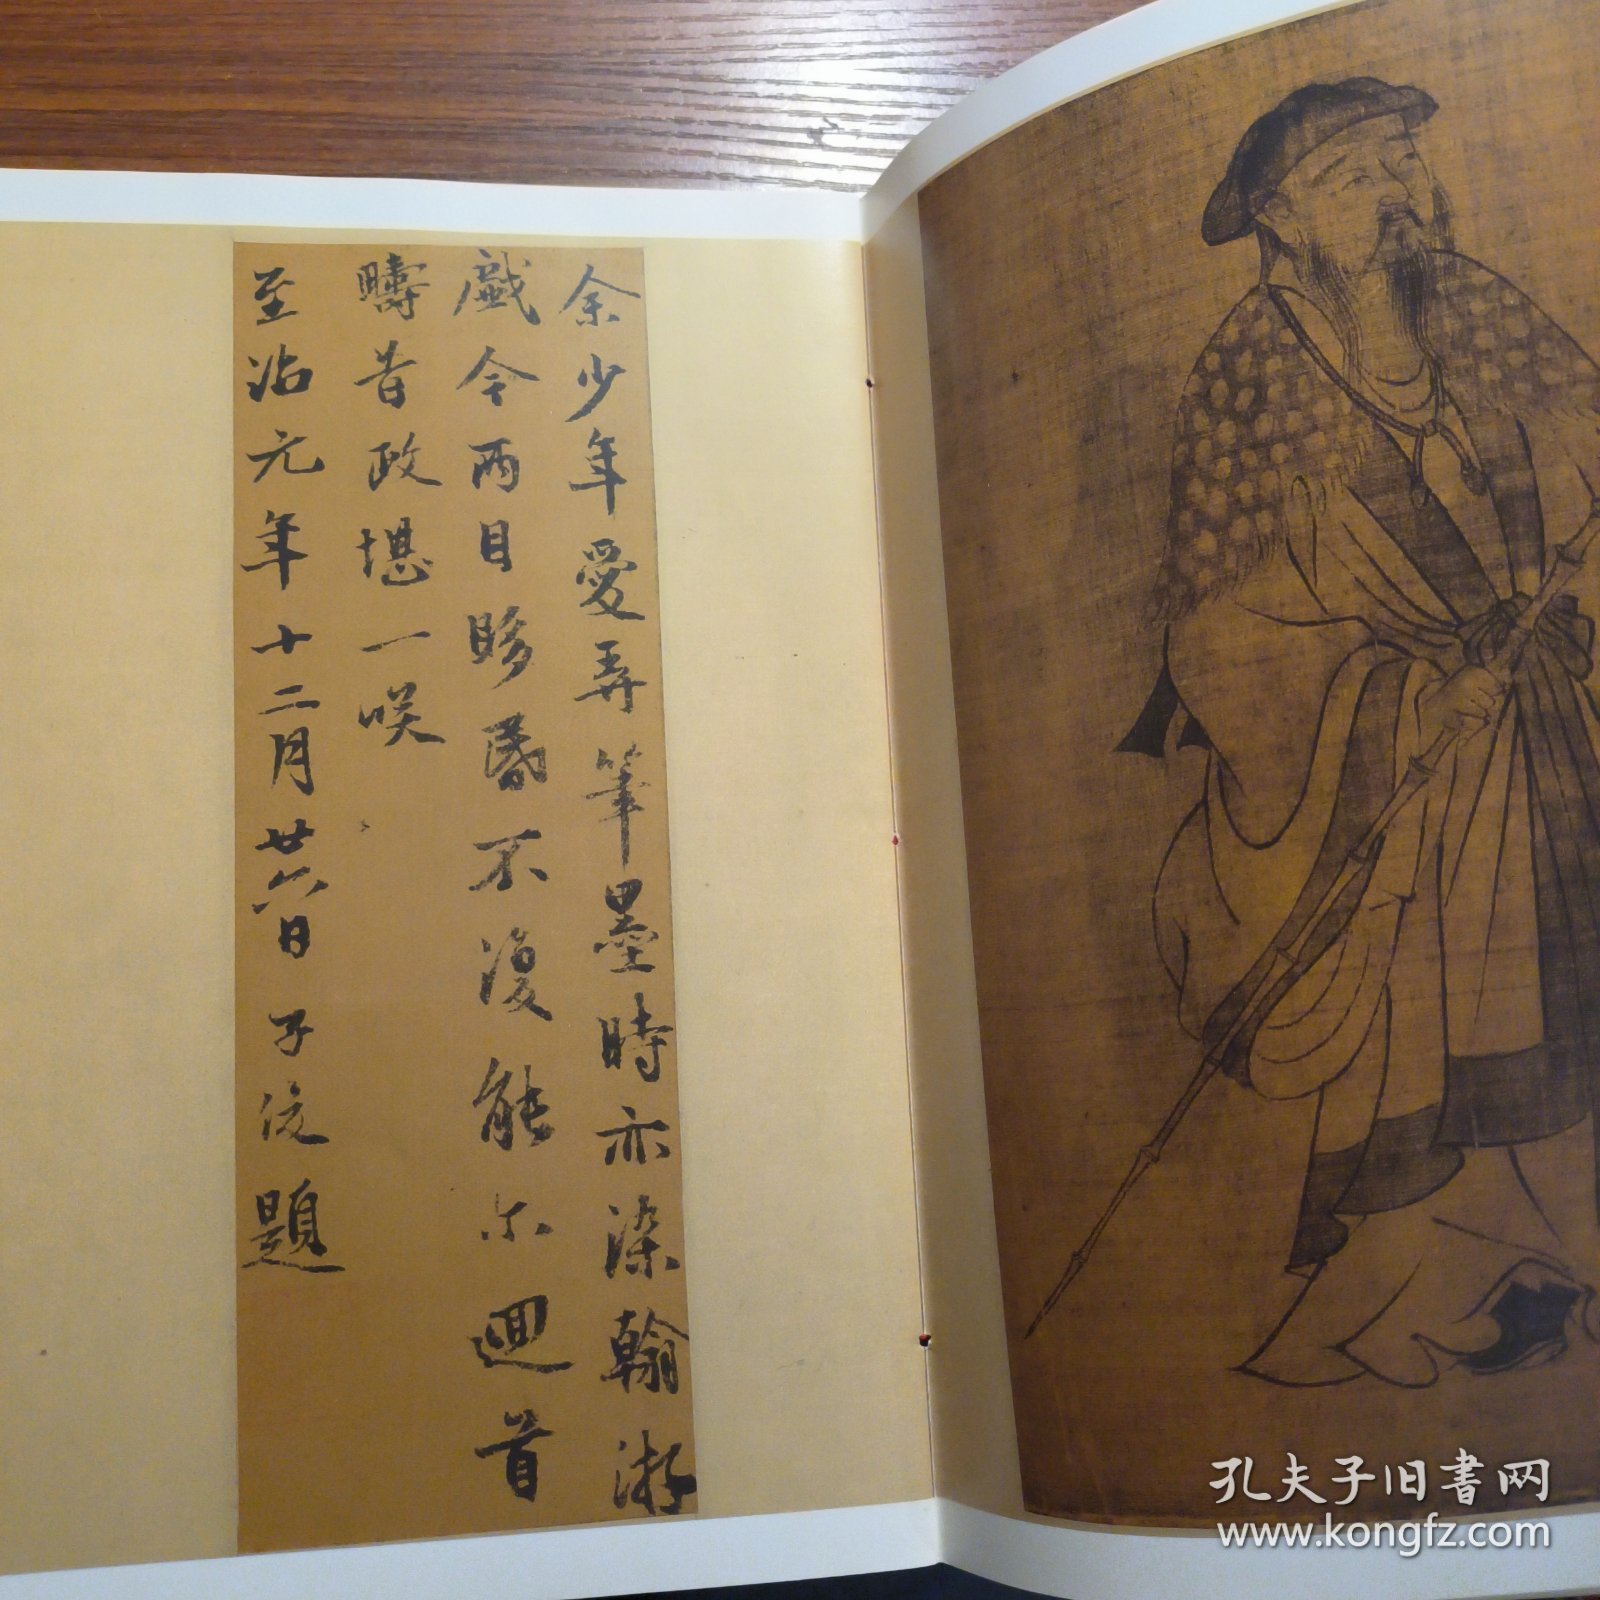 余少年愛弄筆墨時亦染翰游
戲今兩目眵昏不復能尒迴首
疇昔政堪一咲
至治元年十二月廿六日子俊題
孔夫子旧書网
www.kongfz.com